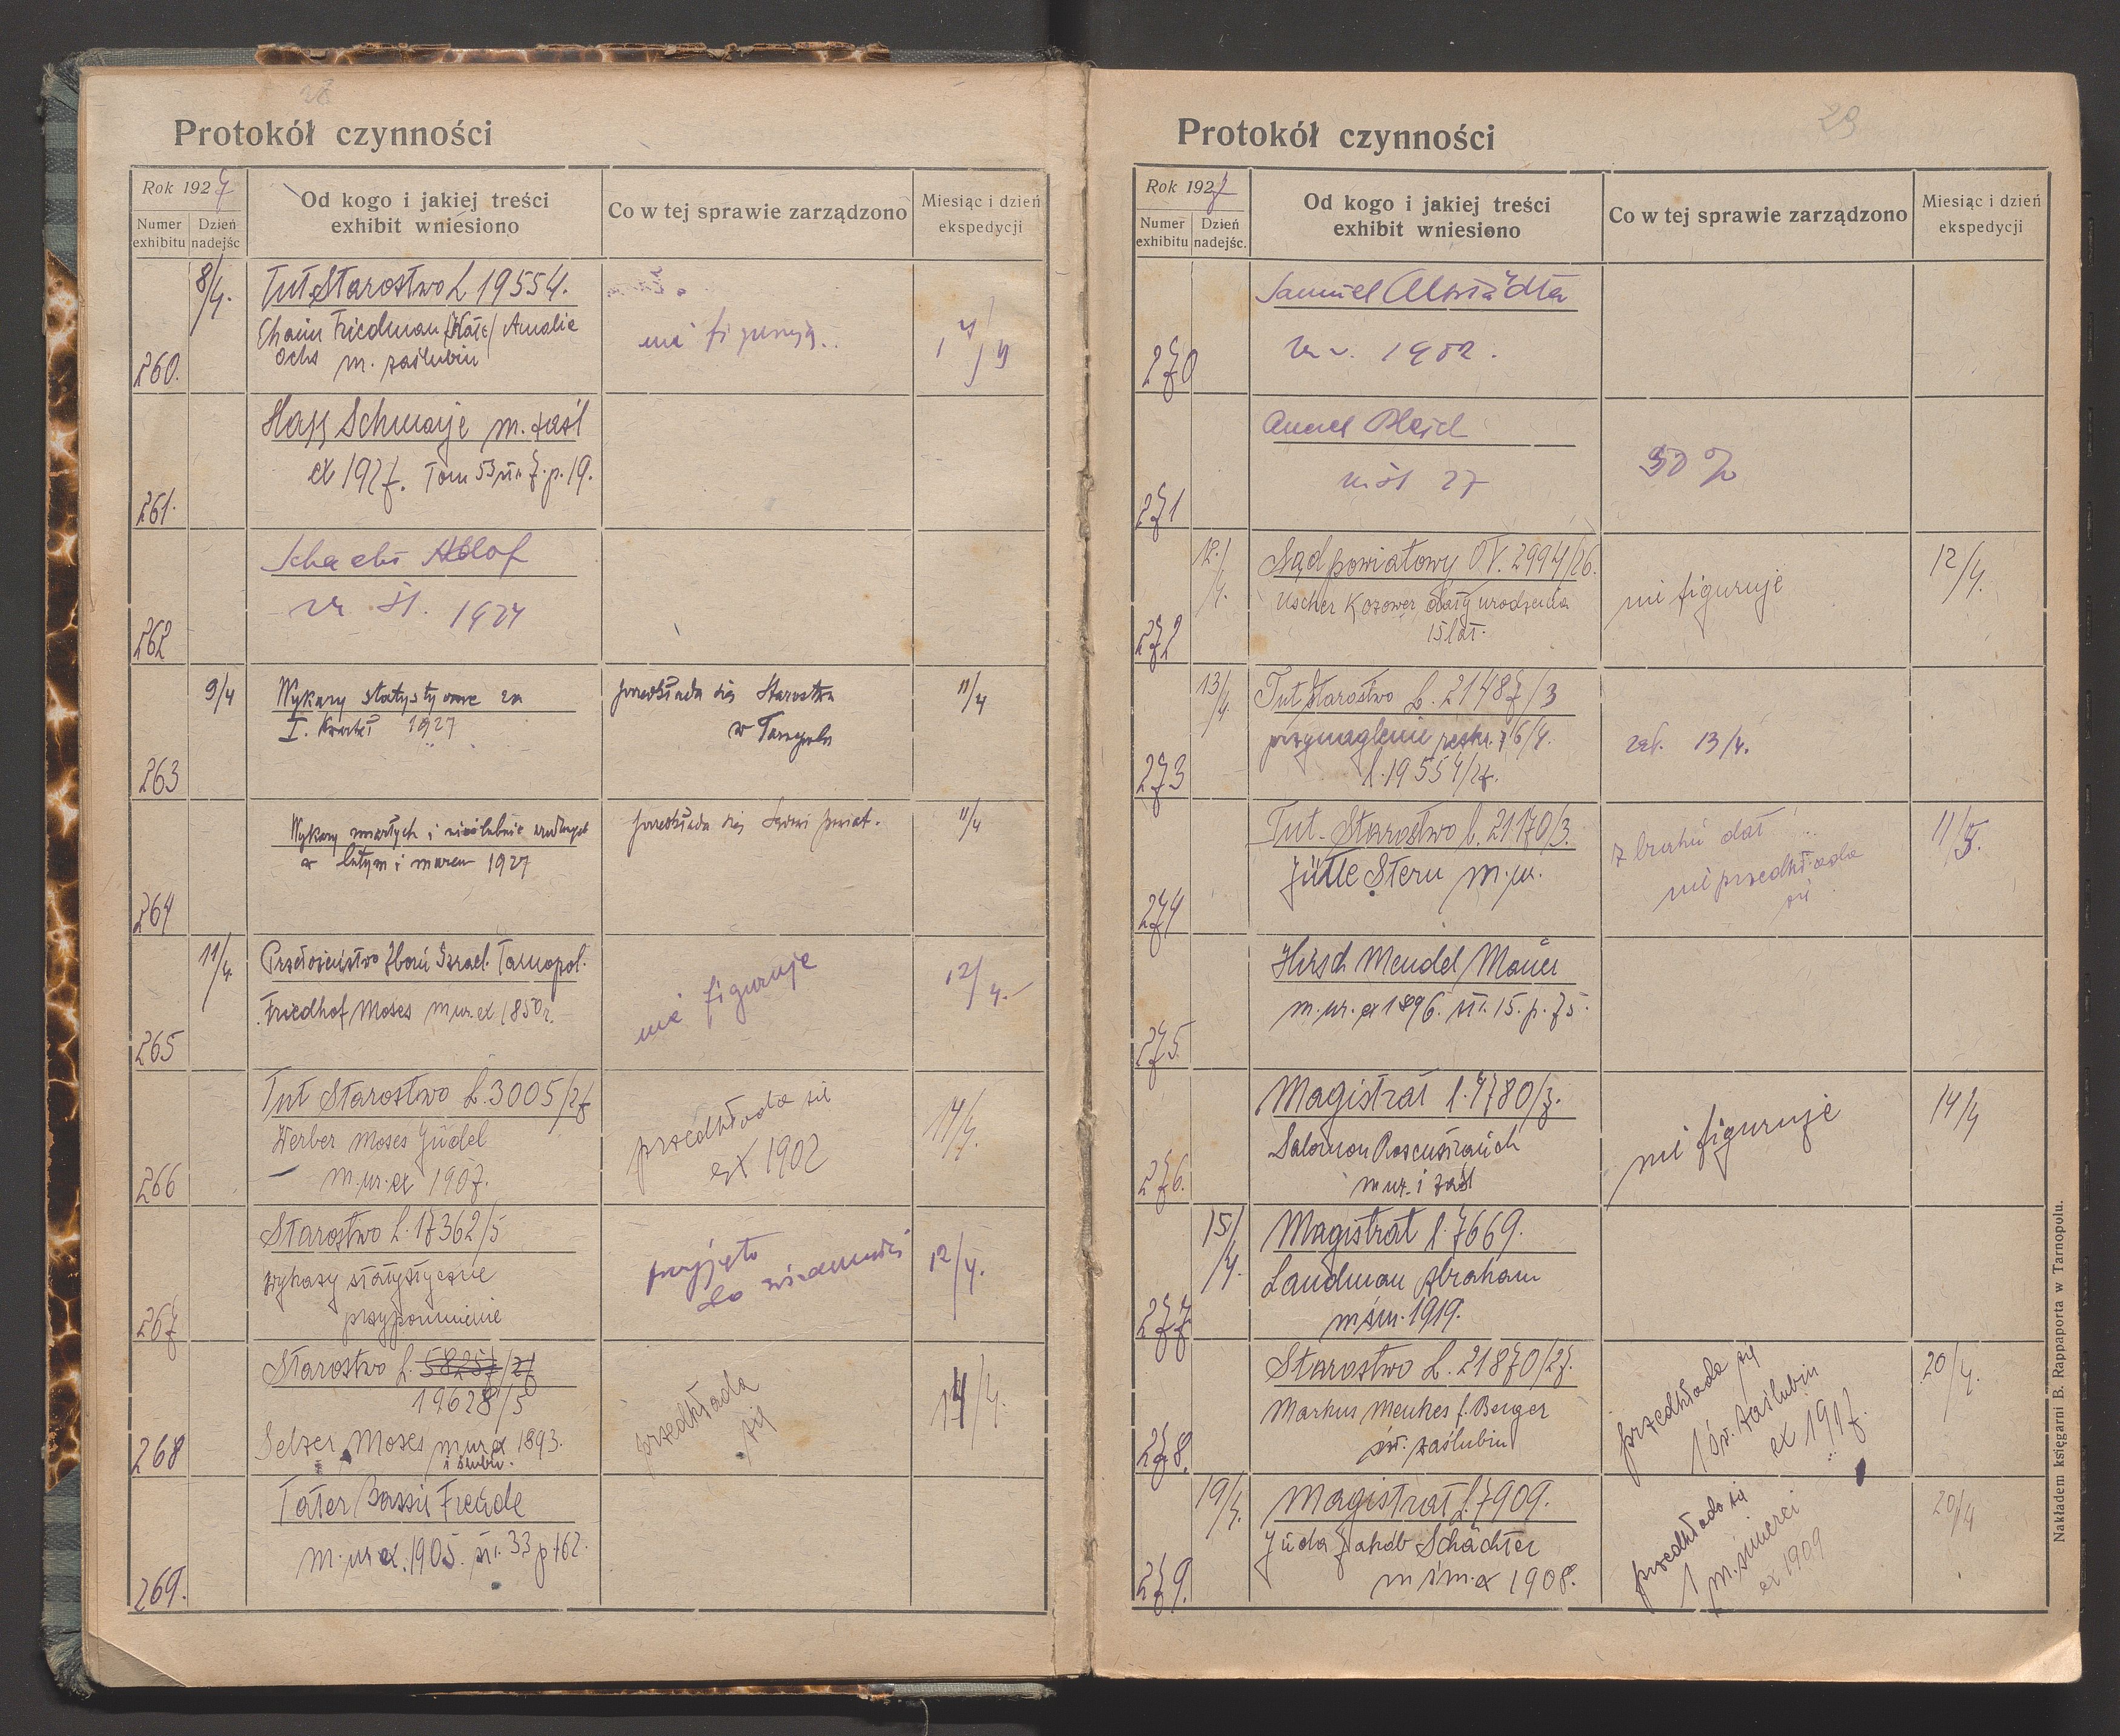 28
Protokół czynności
Rok 1927
Numer exhibitu
Dzień nadejśc
Od kogo i jakiej treści
exhibit wniesiono
Co w tej sprawie zarządzono
Miesiąc i dzień
ekspedycji
260.
8/4.
Tut. Starostwo L 19554.
Chaim Friedman Amalie
Ochs m. zaślubin
nie figurują.
261.
Hass Schmaje m. zaśl
ex 1927. Tom 53 str 7. p. 19.
262
1927
263
9/4
Wykazy statystyczne za
I. kwartał 1927
przedkłada się Starostwa
w Tarnopolu
11/4
264
Wykazy zmarłych i nieślubnie urodzonych
w lutym i marcu 1927
przedkłada się Sądowi powiat.
11/4
265
11/4.
Przełożeństwo Zboru Izrael. Tarnopol.
Friedhof Moses m ur. ex 1850 r.
nie figuruje
12/4.
266
Tut Starostwo L. 3005/27
Werber Moses Jüdel
m. ur. ex 1907.
przedkłada się
ex 1902
14/4.
267
Starostwo L. 17362/5
wykazy statystyczne
przypomnienie
przyjęto
do wiadomości
12/4.
268
Starostwo L. 58257/27
19628/5
Selzer Moses m ur ex 1893.
i ślubu.
przedkłada
się
14/4.
269.
Tater Bassie Freude
m. ur ex. 1905. str. 33 p 162.
29
Protokół czynności
Rok 1927
Numer exhibitu
Dzień nadejśc.
Od kogo i jakiej treści
exhibit wniesiono
Co w tej sprawie zarządzono
Miesiąc i dzień
ekspedycji
270
Samuel Altstädter
1902.
271
27
50 %
272
12./4.
Sąd powiatowy O V. 2994/26.
Uscher Kozower daty urodzenia
15 lat.
nie figuruje
12/4.
273
13/4.
Tut Starostwo L. 21487/3
przynaglenie reskr. z 6/4.
l. 19554/27.
zał. 13/4.
274
Tut. Starostwo l. 21170/3.
Jütte Stern m. ur.
z braku dat
nie przedkłada
się
11/5.
275
Hirsch Mendel Mauer
m. ur. ex 1896. str. 15. p. 75.
276.
Magistrat l. 7780/7.
Salomon Rosenstrauch
m ur. i zaśl
nie figuruje
14/4
277
15/4.
Magistrat l. 7669.
Landman Abraham
m śm. 1919.
278.
Starostwo L. 21870/27.
Markus Menkes f. Berger
św. zaślubin
przedkłada się
1 św. zaślubin
ex 1917.
20/4.
279.
19/4.
Magistrat l. 7909.
Juda Jakób Schächter
m śm. ex 1908.
przedkłada się
1 m. śmierci
ex 1909
20/4
Nakładem księgarni B. Rappaporta w Tarnopolu.